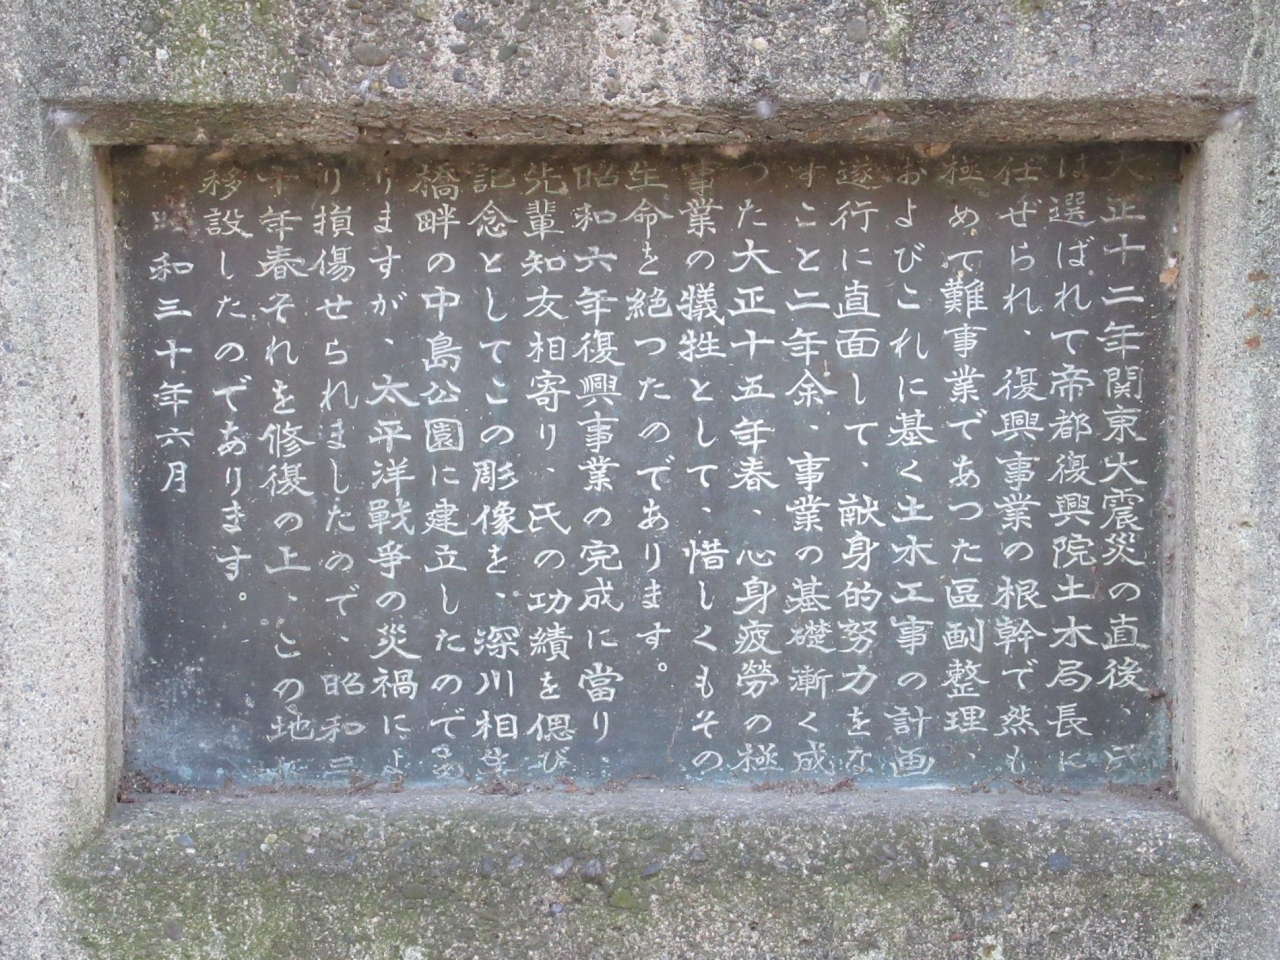 大正十二年関東大震災の直後、氏
は選ばれて帝都復興院土木局長に
任ぜられ、復興事業の根幹で然も
極めて難事業であつた區劃整理、
およびこれに基く土木工事の計画
遂行に直面して、献身的努力をな
すこと二年余、事業の基礎漸く成
つた大正十五年春、心身疲勞の極
事業の犠牲として、惜しくもその
生命を絶つたのであります。
昭和六年復興事業の完成に當り、
先輩知友相寄り、氏の功績を偲び
記念としてこの彫像を、深川相生
橋畔の中島公園に建立したのであ
りますが、太平洋戰爭の災禍によ
り損傷せられましたので、昭和三
十年春それを修復の上、この地に
移設したのであります。
昭和三十年六月